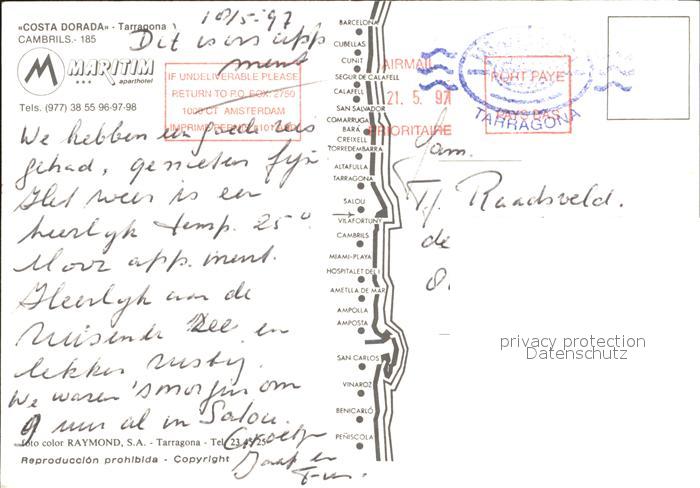 «COSTA DORADA» - Tarragona
CAMBRILS.- 185
18/5-'97
Dit is ons app
ment
M MARITIM
*** aparthotel
Tels. (977) 38 55 96-97-98
IF UNDELIVERABLE PLEASE
RETURN TO P.O. BOX: 2750
1000 CT AMSTERDAM
We hebben een goede reis
gehad, genieten fijn
Het weer is een
heerlijk temp. 25°
Mooi app.ment.
Heerlijk aan de
ruisende Zee en
lekker rustig.
We waren 'smorgens om
9 uur al in Salou.
Groetjes
Jaap en
foto color RAYMOND, S.A. - Tarragona - Tel. 23 45 25
Reproducción prohibida - Copyright
BARCELONA
CUBELLAS
CUNIT
SEGUR DE CALAFELL
CALAFELL
SAN SALVADOR
COMARRUGA
BARÁ
CREIXELL
TORREDEMBARRA
ALTAFULLA
TARRAGONA
SALOU
VILAFORTUNY
CAMBRILS
MIAMI-PLAYA
HOSPITALET DEL I.
AMETLLA DE MAR
AMPOLLA
AMPOSTA
SAN CARLOS
VINAROZ
BENICARLÓ
PEÑISCOLA
AIRMAIL
21. 5. 97
PRIORITAIRE
PORT PAYE
PAYS-BAS
TARRAGONA
Fam.
T.J. Raadsveld.
de
8.
privacy protection
Datenschutz